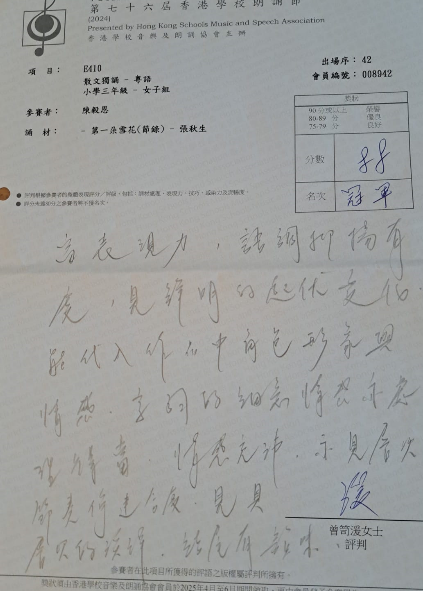 第七十六届香港學校朗誦節
(2024)
Presented by Hong Kong Schools Music and Speech Association
香港學校音樂及朗誦協會主辦
項目： E410
出場序： 42
散文獨誦 - 粵語
會員編號： 008942
小學三年級 - 女子組
參賽者： 陳毅恩
誦材： - 第一朵雪花(節錄) - 張秋生
獎狀
90 分或以上 榮譽
80-89 分 優良
75-79 分 良好
分數 88
名次 冠軍
富表現力，語調抑揚有
度，見鮮明的起伏變化．
能代入作品中角色形象與
情感．字詞的細意情感亦處
理得當．情感充沛．亦見層次
節奏
見具
層次的演繹．結尾有韻味．
曾笥湲女士
評判
參賽者在此項目所獲得的評語之版權屬評判所擁有。